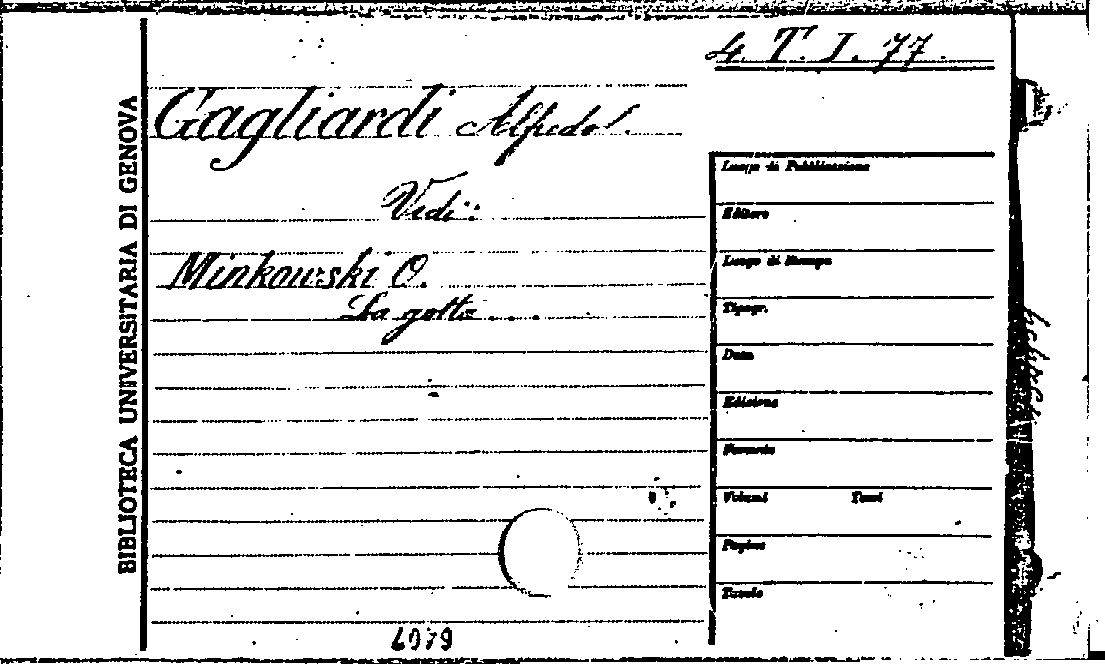 4. T. I. 77.
Gagliardi Alfredo.
Vedi:
Minkowski O.
La gotta . . .
BIBLIOTECA UNIVERSITARIA DI GENOVA
Luogo di Pubblicazione
Editore
Luogo di Stampa
Tipogr.
Data
Edizione
Formato
Volumi Tomi
Pagine
Tavole
4079